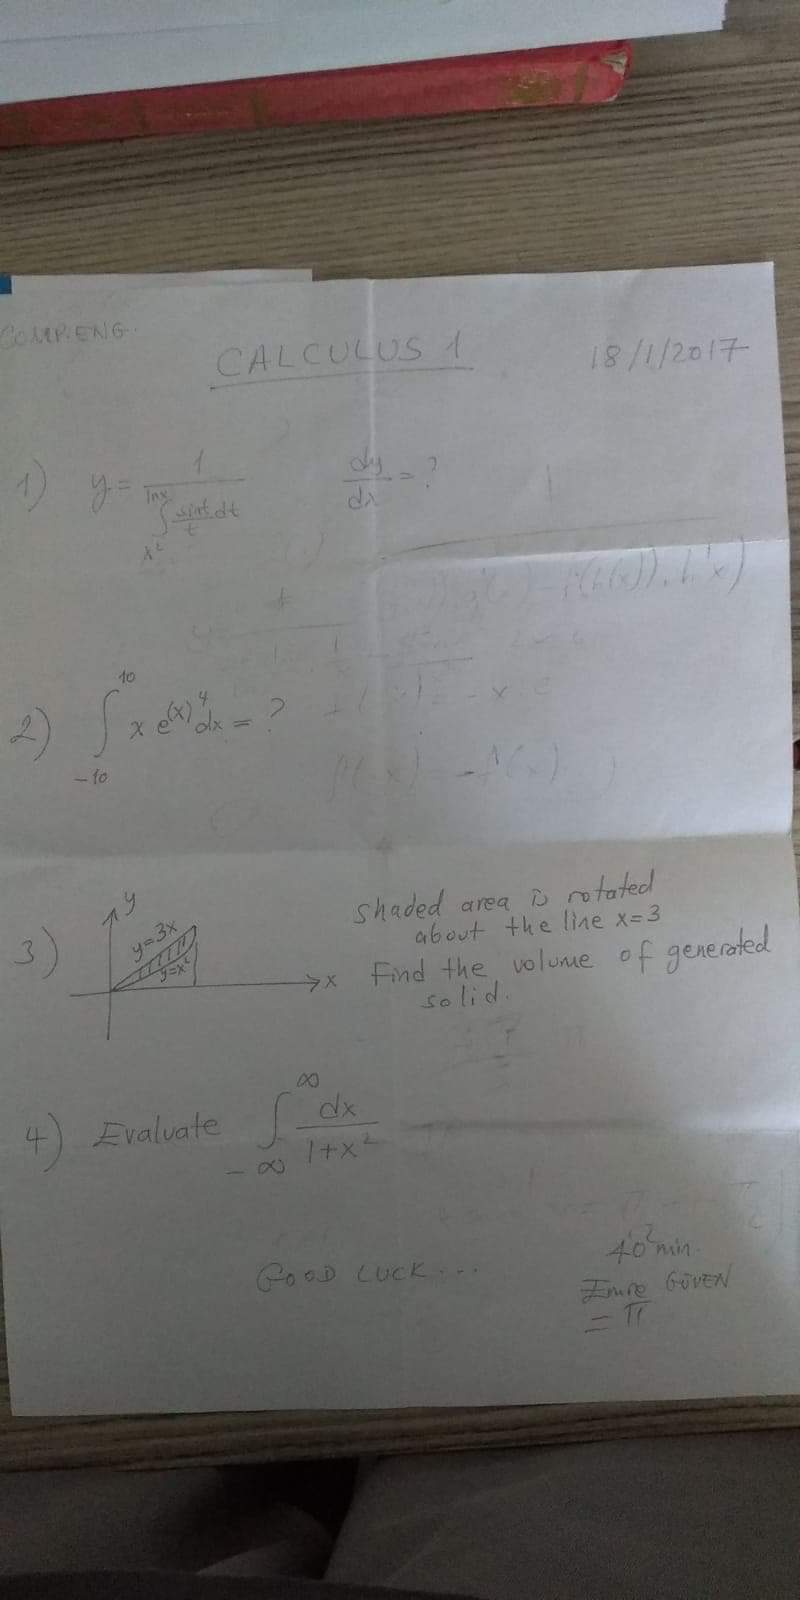 COMP.ENG.
CALCULUS 1
18/1/2017
1) y = 1 / ∫_{x²}^{lnx} sint/t dt    dy/dx = ?
2) ∫_{-10}^{10} x e^{(x)^4} dx = ?
3) y
y=3x
y=x²
x
shaded area is rotated
about the line x=3
Find the volume of generated
solid.
4) Evaluate ∫_{-∞}^{∞} dx / 1+x²
GOOD LUCK...
40 min.
Emre GÜVEN
= π